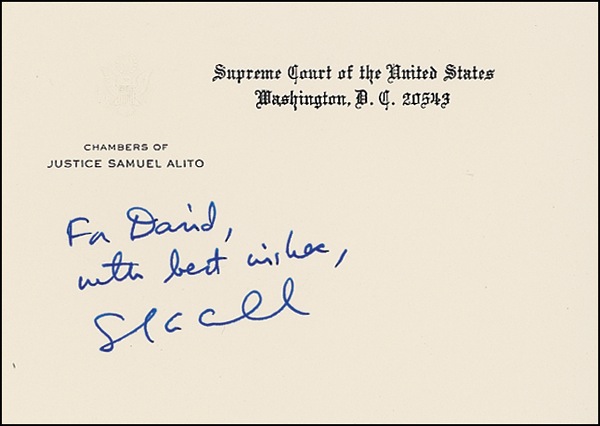 Supreme Court of the United States
Washington, D. C. 20543
CHAMBERS OF
JUSTICE SAMUEL ALITO
For David,
with best wishes,